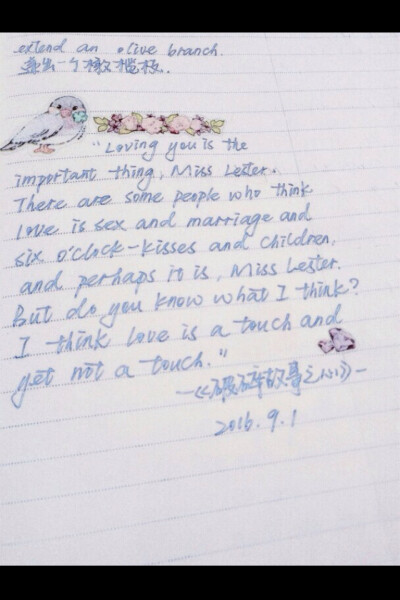 extend an olive branch.
出一个橄榄枝.
"Loving you is the
important thing, Miss Lester.
There are some people who think
love is sex and marriage and
six o'clock-kisses and children,
and perhaps it is, Miss Lester.
But do you know what I think?
I think love is a touch and
yet not a touch."
—《破碎故事之心》—
2016.9.1